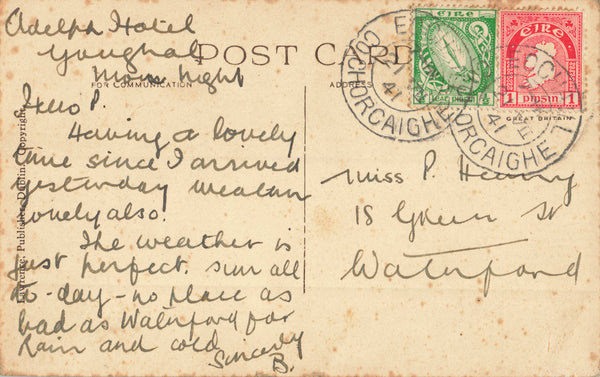 Adelphi Hotel
Youghal
Mon. Night
POST CARD
FOR COMMUNICATION
ADDRESS
Hello P.
Having a lovely
time since I arrived
yesterday weather
lovely also.
The weather is
just perfect. Sun all
to-day - no place as
bad as Waterford for
Rain and cold
Sincerely
B.
Miss P. Henry
18 Green St
Waterford
Lawrence, Publisher, Dublin, Copyright
ÉIRE
1 pingin 1
GREAT BRITAIN
EOCHAILL
CO CHORCAIGHE
41
EOCHAILL
CO CHORCAIGHE
41